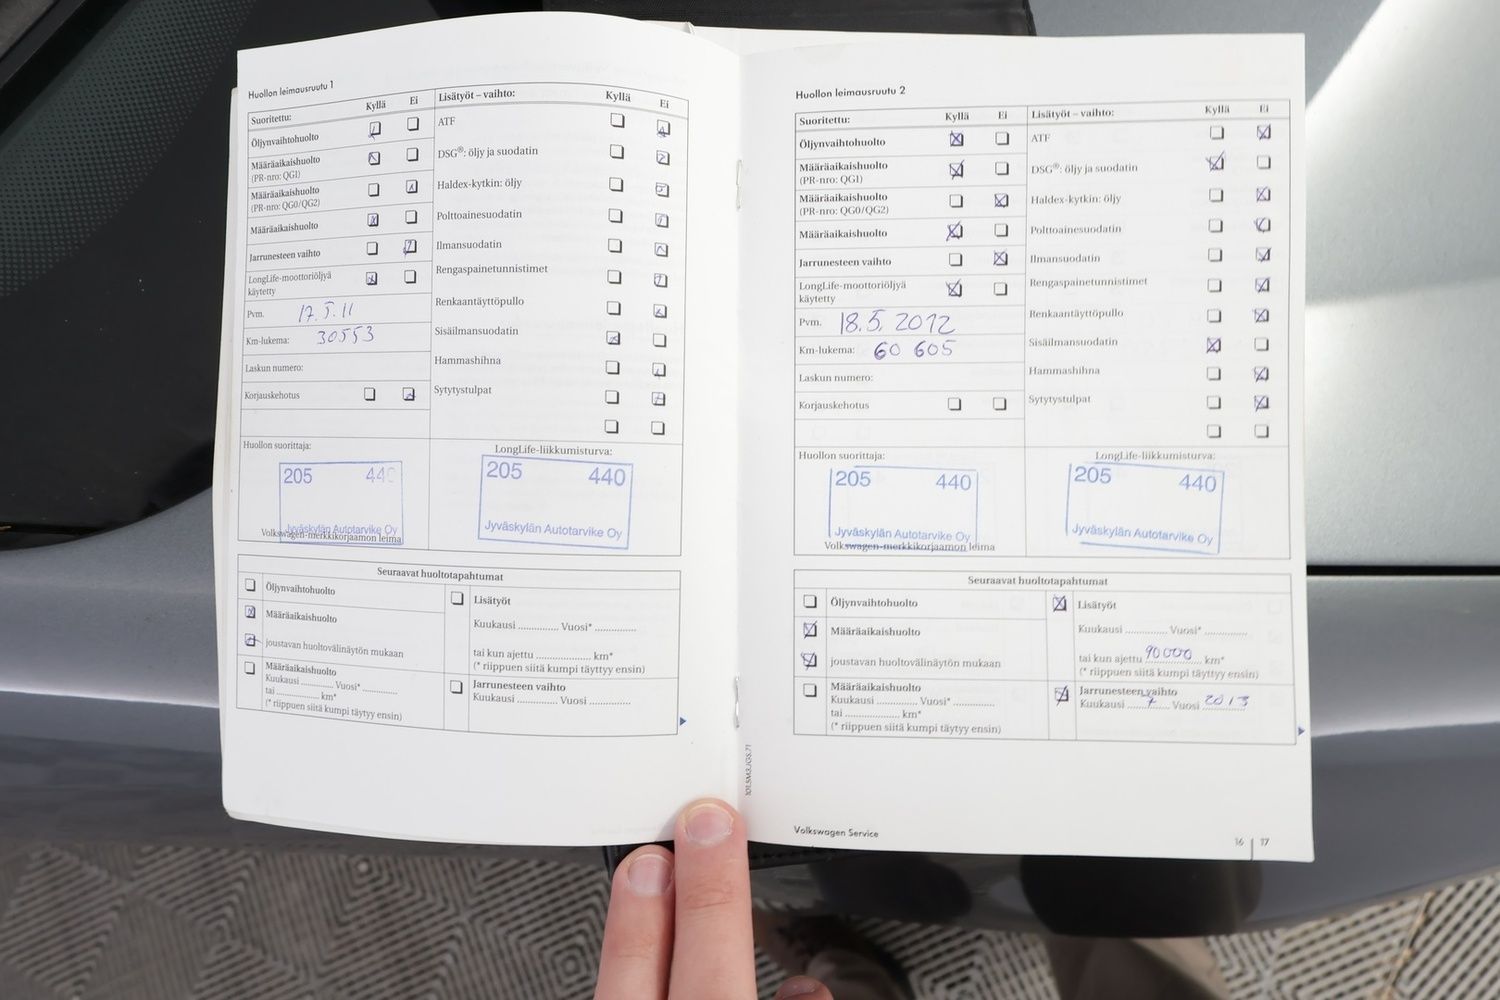 Huollon leimausruutu 1
Suoritettu: Kyllä Ei
Öljynvaihtohuolto
Määräaikaishuolto
(PR-nro: QG1)
Määräaikaishuolto
(PR-nro: QG0/QG2)
Määräaikaishuolto
Jarrunesteen vaihto
LongLife-moottoriöljyä
käytetty
Pvm. 17.5.11
Km-lukema: 30553
Laskun numero:
Korjauskehotus
Lisätyöt – vaihto: Kyllä Ei
ATF
DSG®: öljy ja suodatin
Haldex-kytkin: öljy
Polttoainesuodatin
Ilmansuodatin
Rengaspainetunnistimet
Renkaantäyttöpullo
Sisäilmansuodatin
Hammashihna
Sytytystulpat
Huollon suorittaja:
205 440
Jyväskylän Autotarvike Oy
Volkswagen-merkkikorjaamon leima
LongLife-liikkumisturva:
205 440
Jyväskylän Autotarvike Oy
Seuraavat huoltotapahtumat
Öljynvaihtohuolto
Määräaikaishuolto
joustavan huoltovälinäytön mukaan
Määräaikaishuolto
Kuukausi .............. Vuosi* ..............
tai .............. km*
(* riippuen siitä kumpi täytyy ensin)
Lisätyöt
Kuukausi .............. Vuosi* ..............
tai kun ajettu .................. km*
(* riippuen siitä kumpi täyttyy ensin)
Jarrunesteen vaihto
Kuukausi .............. Vuosi ..............
Huollon leimausruutu 2
Suoritettu: Kyllä Ei
Öljynvaihtohuolto
Määräaikaishuolto
(PR-nro: QG1)
Määräaikaishuolto
(PR-nro: QG0/QG2)
Määräaikaishuolto
Jarrunesteen vaihto
LongLife-moottoriöljyä
käytetty
Pvm. 18.5.2012
Km-lukema: 60 605
Laskun numero:
Korjauskehotus
Lisätyöt – vaihto: Kyllä Ei
ATF
DSG®: öljy ja suodatin
Haldex-kytkin: öljy
Polttoainesuodatin
Ilmansuodatin
Rengaspainetunnistimet
Renkaantäyttöpullo
Sisäilmansuodatin
Hammashihna
Sytytystulpat
Huollon suorittaja:
205 440
Jyväskylän Autotarvike Oy
Volkswagen-merkkikorjaamon leima
LongLife-liikkumisturva:
205 440
Jyväskylän Autotarvike Oy
Seuraavat huoltotapahtumat
Öljynvaihtohuolto
Määräaikaishuolto
joustavan huoltovälinäytön mukaan
Määräaikaishuolto
Kuukausi .............. Vuosi* ..............
tai .............. km*
(* riippuen siitä kumpi täytyy ensin)
Lisätyöt
Kuukausi .............. Vuosi* ..............
tai kun ajettu 90000 km*
(* riippuen siitä kumpi täyttyy ensin)
Jarrunesteen vaihto
Kuukausi 7 Vuosi 2013
Volkswagen Service
16 | 17